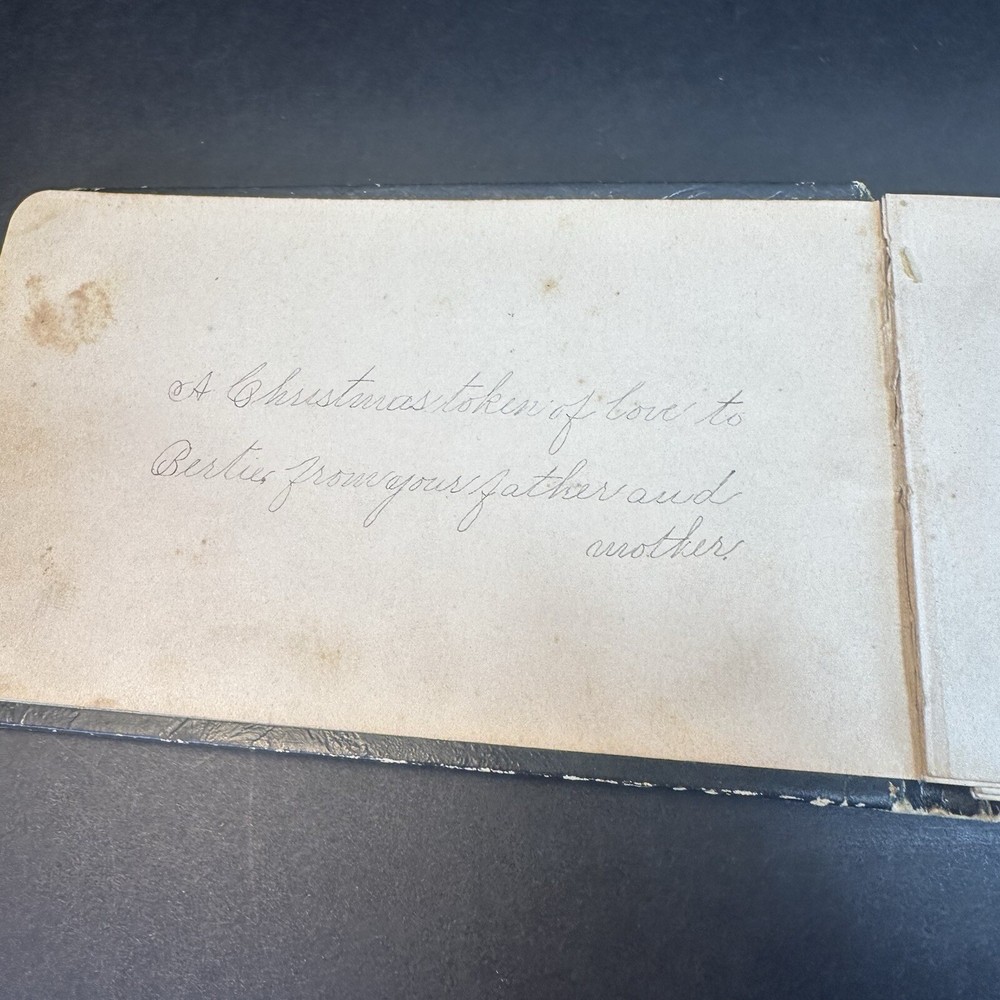 A Christmas token of love to
Bertie, from your father and
mother.